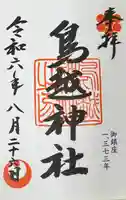 奉拝
鳥越神社
御鎮座
一、三七三年
令和六年八月二十六日